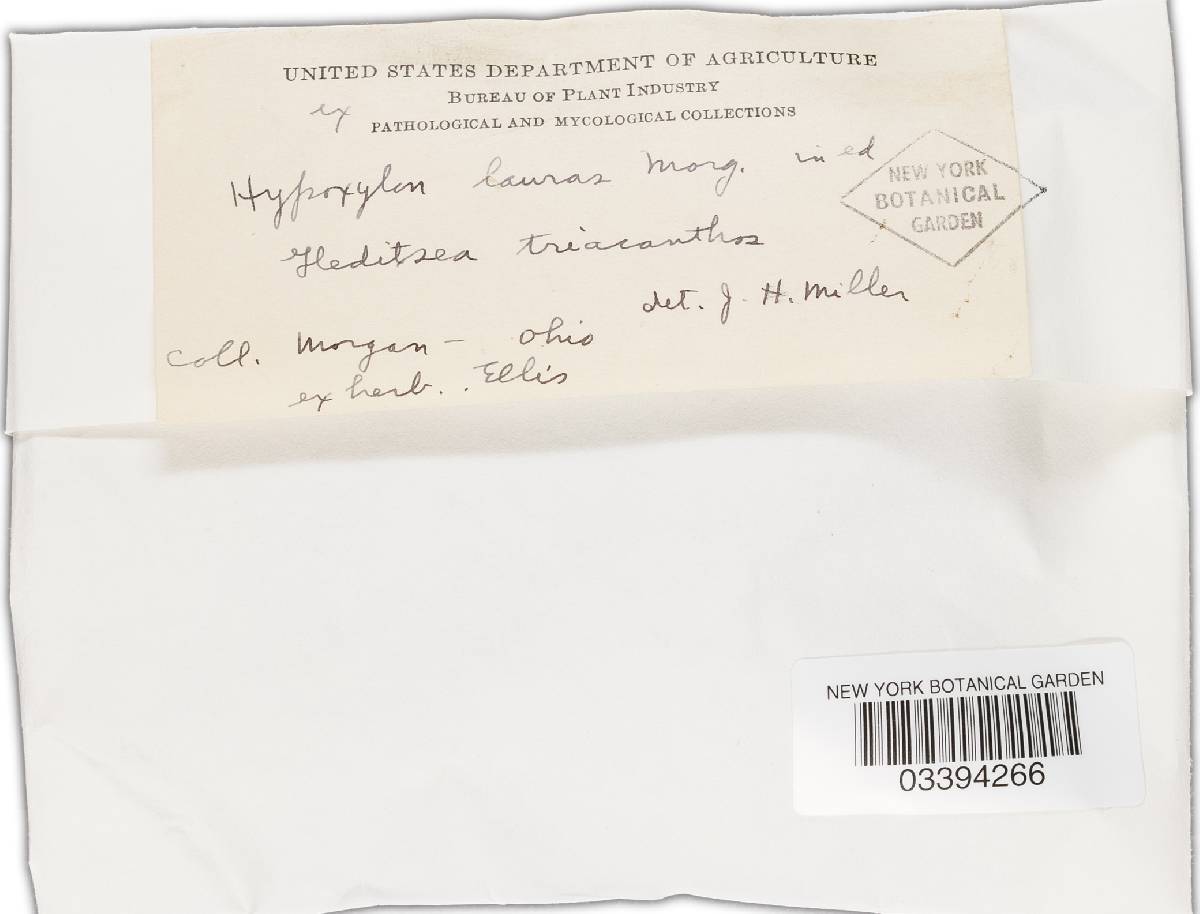 UNITED STATES DEPARTMENT OF AGRICULTURE
BUREAU OF PLANT INDUSTRY
ex PATHOLOGICAL AND MYCOLOGICAL COLLECTIONS
Hypoxylon Morg. in ed
NEW YORK
BOTANICAL
GARDEN
Gleditsea triacanthos
det. J. H. Miller
Coll. Morgan - Ohio
ex herb. Ellis
NEW YORK BOTANICAL GARDEN
03394266